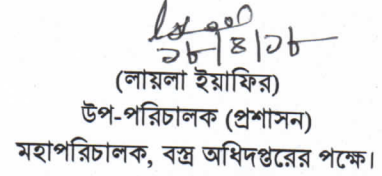 ২৮|৪|২৮
(লায়লা ইয়াফির)
উপ-পরিচালক (প্রশাসন)
মহাপরিচালক, বস্ত্র অধিদপ্তরের পক্ষে।